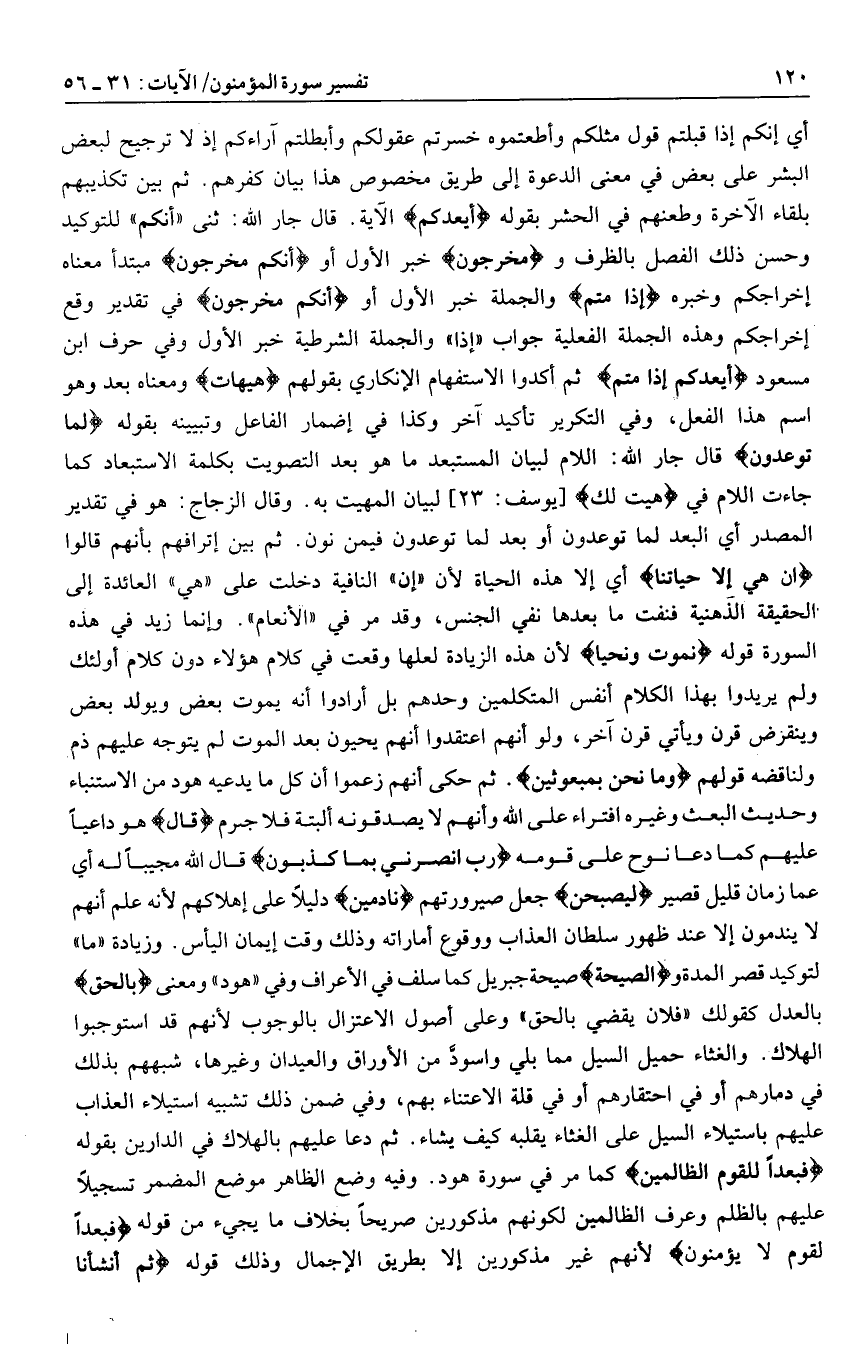 ١٢٠
تفسير سورة المؤمنون/ الآيات: ٣١ ـ ٥٦
أي إنكم إذا قبلتم قول مثلكم وأطعتموه خسرتم عقولكم وأبطلتم آراءكم إذ لا ترجيح لبعض
البشر على بعض في معنى الدعوة إلى طريق مخصوص هذا بيان كفرهم. ثم بين تكذيبهم
بلقاء الآخرة وطعنهم في الحشر بقوله ﴿أيعدكم﴾ الآية. قال جار الله: ثنى «أنكم» للتوكيد
وحسن ذلك الفصل بالظرف و ﴿مخرجون﴾ خبر الأول أو ﴿أنكم مخرجون﴾ مبتدأ معناه
إخراجكم وخبره ﴿إذا متم﴾ والجملة خبر الأول أو ﴿أنكم مخرجون﴾ في تقدير وقع
إخراجكم وهذه الجملة الفعلية جواب «إذا» والجملة الشرطية خبر الأول وفي حرف ابن
مسعود ﴿أيعدكم إذا متم﴾ ثم أكدوا الاستفهام الإنكاري بقولهم ﴿هيهات﴾ ومعناه بعد وهو
اسم هذا الفعل، وفي التكرير تأكيد آخر وكذا في إضمار الفاعل وتبيينه بقوله ﴿لما
توعدون﴾ قال جار الله: اللام لبيان المستبعد ما هو بعد التصويت بكلمة الاستبعاد كما
جاءت اللام في ﴿هيت لك﴾ [يوسف: ٢٣] لبيان المهيت به. وقال الزجاج: هو في تقدير
المصدر أي البعد لما توعدون أو بعد لما توعدون فيمن نون. ثم بين إترافهم بأنهم قالوا
﴿ان هي إلا حياتنا﴾ أي إلا هذه الحياة لأن «إن» النافية دخلت على «هي» العائدة إلى
الحقيقة الذهنية فنفت ما بعدها نفي الجنس، وقد مر في «الأنعام». وإنما زيد في هذه
السورة قوله ﴿نموت ونحيا﴾ لأن هذه الزيادة لعلها وقعت في كلام هؤلاء دون كلام أولئك
ولم يريدوا بهذا الكلام أنفس المتكلمين وحدهم بل أرادوا أنه يموت بعض ويولد بعض
وينقرض قرن ويأتي قرن آخر، ولو أنهم اعتقدوا أنهم يحيون بعد الموت لم يتوجه عليهم ذم
ولناقضه قولهم ﴿وما نحن بمبعوثين﴾. ثم حكى أنهم زعموا أن كل ما يدعيه هود من الاستنباء
وحديث البعث وغيره افتراء على الله وأنهم لا يصدقونه ألبتة فلا جرم ﴿قال﴾ هو داعياً
عليهم كما دعا نوح على قومه ﴿رب انصرني بما كذبون﴾ قال الله مجيباً له أي
عما زمان قليل قصير ﴿ليصبحن﴾ جعل صيرورتهم ﴿نادمين﴾ دليلاً على إهلاكهم لأنه علم أنهم
لا يندمون إلا عند ظهور سلطان العذاب ووقوع أماراته وذلك وقت إيمان اليأس. وزيادة «ما»
لتوكيد قصر المدةو﴿الصيحة﴾صيحة جبريل كما سلف في الأعراف وفي «هود» ومعنى ﴿بالحق﴾
بالعدل كقولك «فلان يقضي بالحق» وعلى أصول الاعتزال بالوجوب لأنهم قد استوجبوا
الهلاك. والغثاء حميل السيل مما بلي واسودَّ من الأوراق والعيدان وغيرها، شبههم بذلك
في دمارهم أو في احتقارهم أو في قلة الاعتناء بهم، وفي ضمن ذلك تشبيه استيلاء العذاب
عليهم باستيلاء السيل على الغثاء يقلبه كيف يشاء. ثم دعا عليهم بالهلاك في الدارين بقوله
﴿فبعداً للقوم الظالمين﴾ كما مر في سورة هود. وفيه وضع الظاهر موضع المضمر تسجيلاً
عليهم بالظلم وعرف الظالمين لكونهم مذكورين صريحاً بخلاف ما يجيء من قوله ﴿فبعداً
لقوم لا يؤمنون﴾ لأنهم غير مذكورين إلا بطريق الإجمال وذلك قوله ﴿ثم أنشأنا